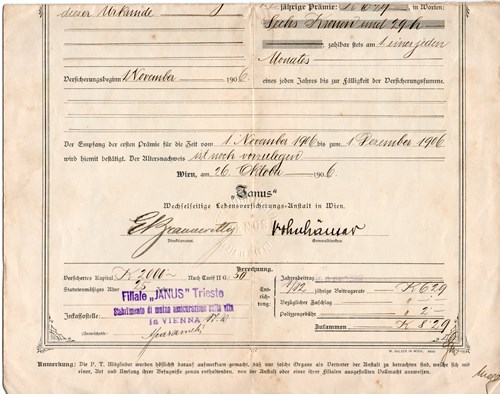 dieser Urkunde
jährige Prämie: K 6·29, in Worten:
Sechs Kronen und 29 h
zahlbar stets am 1 eines jeden
Monates
Versicherungsbeginn 1 November 1906 eines jeden Jahres bis zur Fälligkeit der Versicherungssumme.
Der Empfang der ersten Prämie für die Zeit vom 1 November 1906 bis zum 1 Dezember 1906
wird hiemit bestätigt. Der Altersnachweis ist noch vorzulegen
Wien, am 26. Oktober 1906.
„Janus“
Wechselseitige Lebensversicherungs-Anstalt in Wien.
Berechnung.
Versichertes Kapital K 2000·— Nach Tarif II G. 30
Statutenmäßiges Alter 25
Jahresbeitrag
Ent-richtung:
1/12 jährige Beitragsrate K 6·29
Bezüglicher Zuschlag
Polizzengebühr 2·—
Zusammen K 8·29
Filiale „JANUS“ Trieste
Stabilimento di mutua assicurazione sulla vita
in VIENNA
Inkassostelle:
Anmerkung: Die P. T. Mitglieder werden höflichst darauf aufmerksam gemacht, daß nur solche Organe als Vertreter der Anstalt zu betrachten sind, welche sich mit
einer, Art und Umfang ihrer Befugnisse genau enthaltenden, von der Anstalt oder einer ihrer Filialen ausgestellten Vollmacht ausweisen.